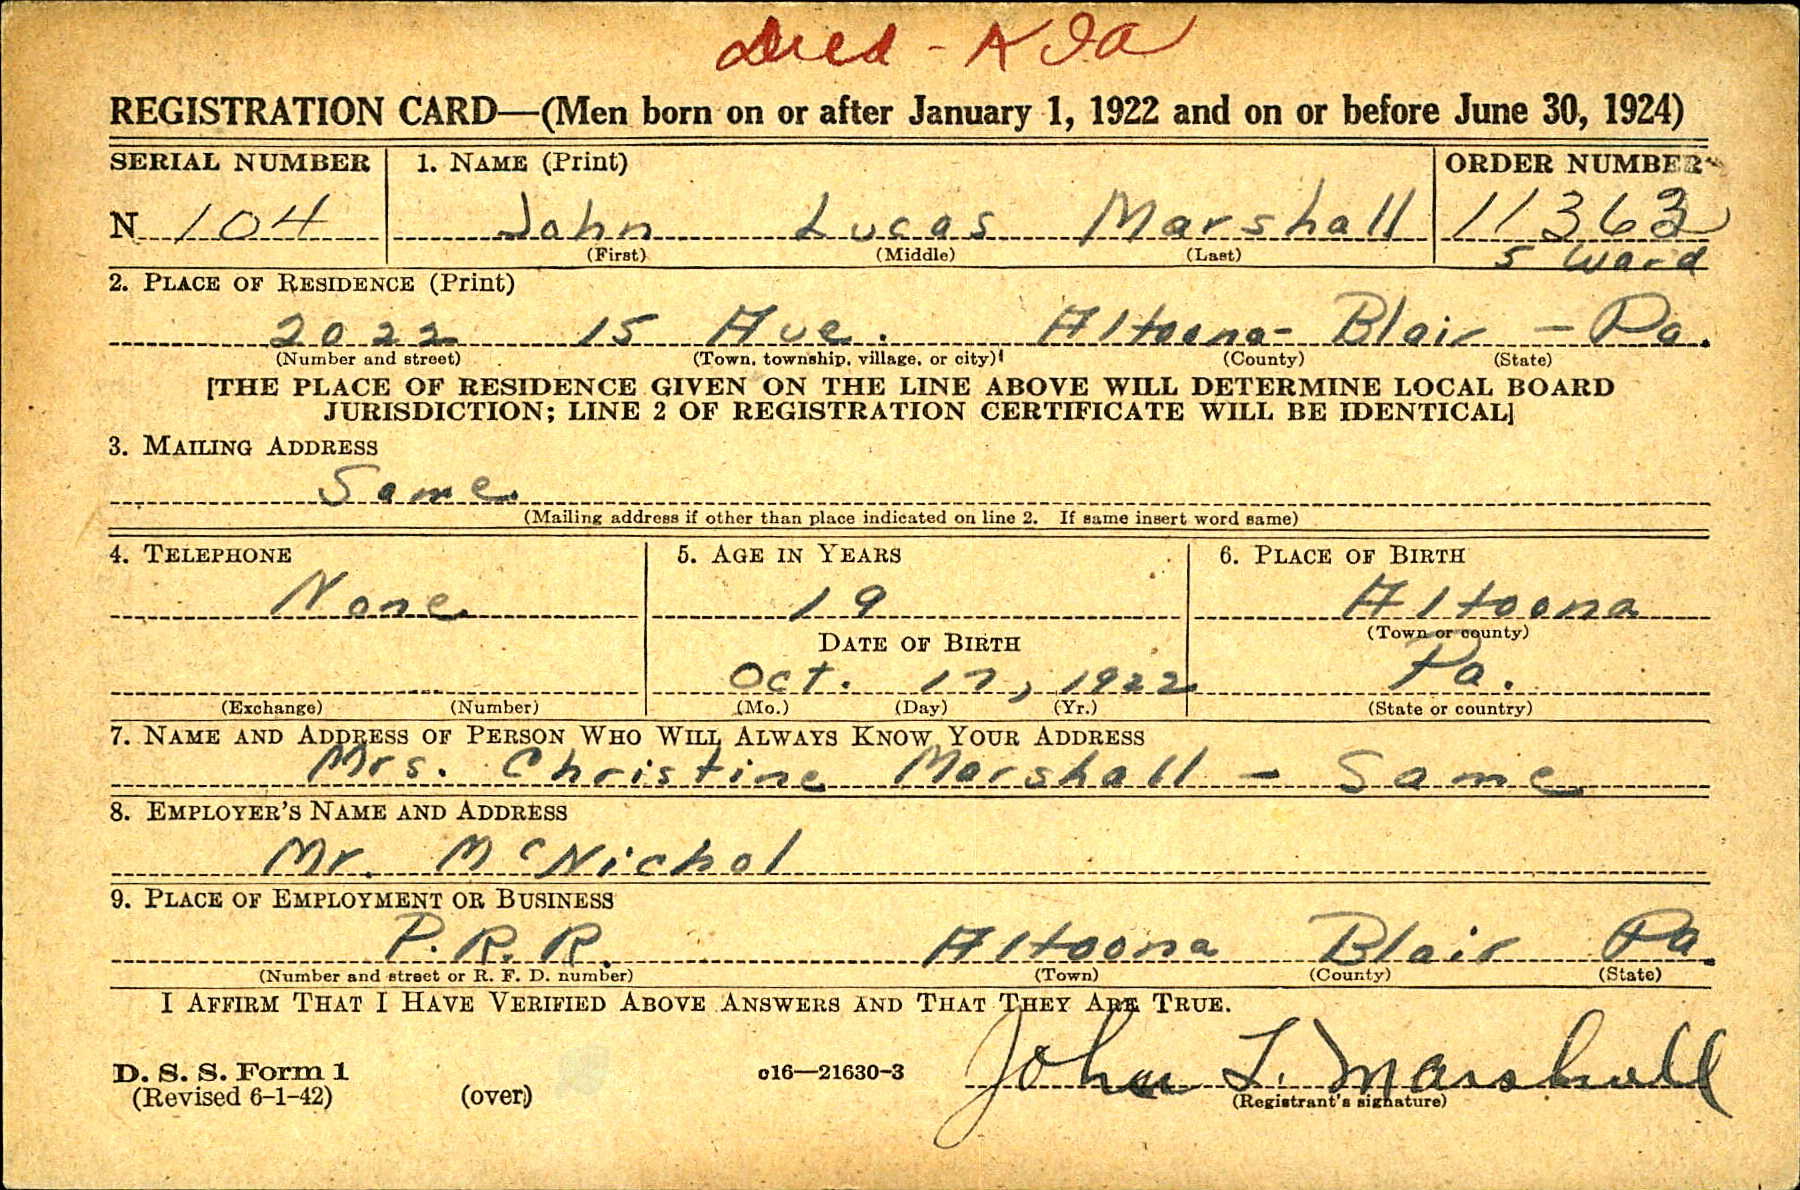 Died - KIA
REGISTRATION CARD—(Men born on or after January 1, 1922 and on or before June 30, 1924)
SERIAL NUMBER 1. NAME (Print) ORDER NUMBER
N 104 John Lucas Marshall 11363
(First) (Middle) (Last) 5 Ward
2. PLACE OF RESIDENCE (Print)
2022 15 Ave. Altoona - Blair - Pa.
(Number and street) (Town, township, village, or city) (County) (State)
[THE PLACE OF RESIDENCE GIVEN ON THE LINE ABOVE WILL DETERMINE LOCAL BOARD
JURISDICTION; LINE 2 OF REGISTRATION CERTIFICATE WILL BE IDENTICAL]
3. MAILING ADDRESS
Same
(Mailing address if other than place indicated on line 2. If same insert word same)
4. TELEPHONE 5. AGE IN YEARS 6. PLACE OF BIRTH
None 19 Altoona
DATE OF BIRTH (Town or county)
Oct. 17, 1922 Pa.
(Exchange) (Number) (Mo.) (Day) (Yr.) (State or country)
7. NAME AND ADDRESS OF PERSON WHO WILL ALWAYS KNOW YOUR ADDRESS
Mrs. Christine Marshall - Same
8. EMPLOYER'S NAME AND ADDRESS
Mr. McNichol
9. PLACE OF EMPLOYMENT OR BUSINESS
P.R.R. Altoona Blair Pa.
(Number and street or R. F. D. number) (Town) (County) (State)
I AFFIRM THAT I HAVE VERIFIED ABOVE ANSWERS AND THAT THEY ARE TRUE.
John L. Marshall
D. S. S. Form 1 c16—21630-3
(Revised 6-1-42) (over) (Registrant's signature)